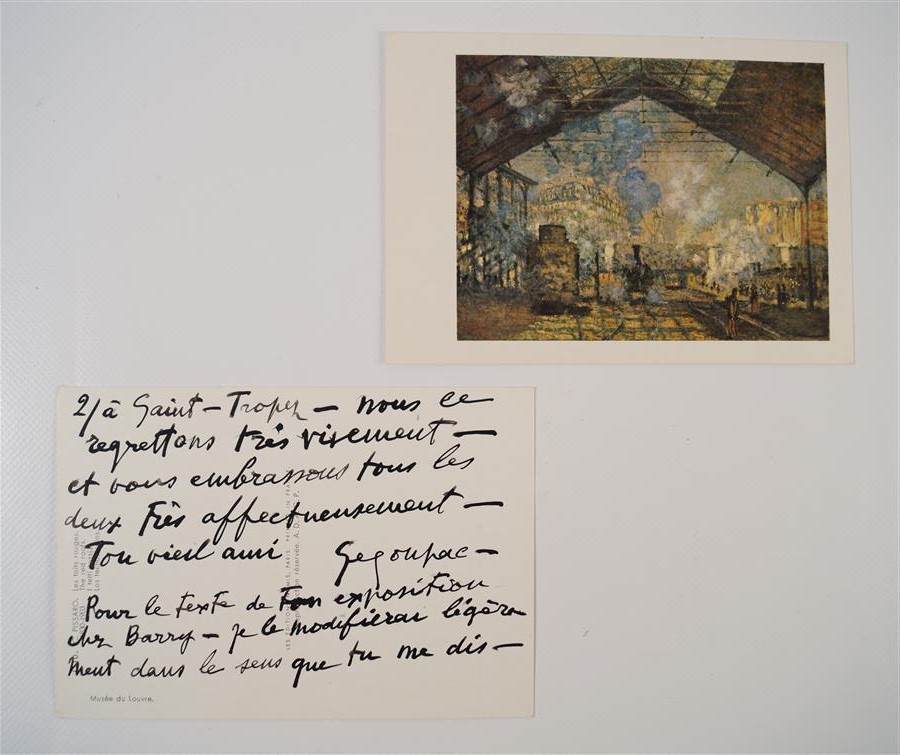 2/à Saint-Tropez — nous le
regrettons très vivement —
et vous embrassons tous les
deux Très affectueusement —
Ton vieil ami
Pour le texte de Ton exposition
chez Barry — je le modifierai légère
ment dans le sens que tu me dis —
PISSARO. Les toits rouges.
The red roofs.
Musée du Louvre.